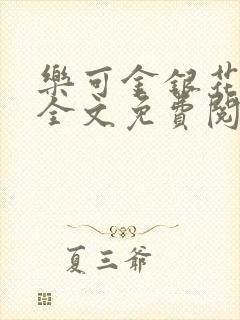 樂可金銀花
全文免費閱
夏三爺